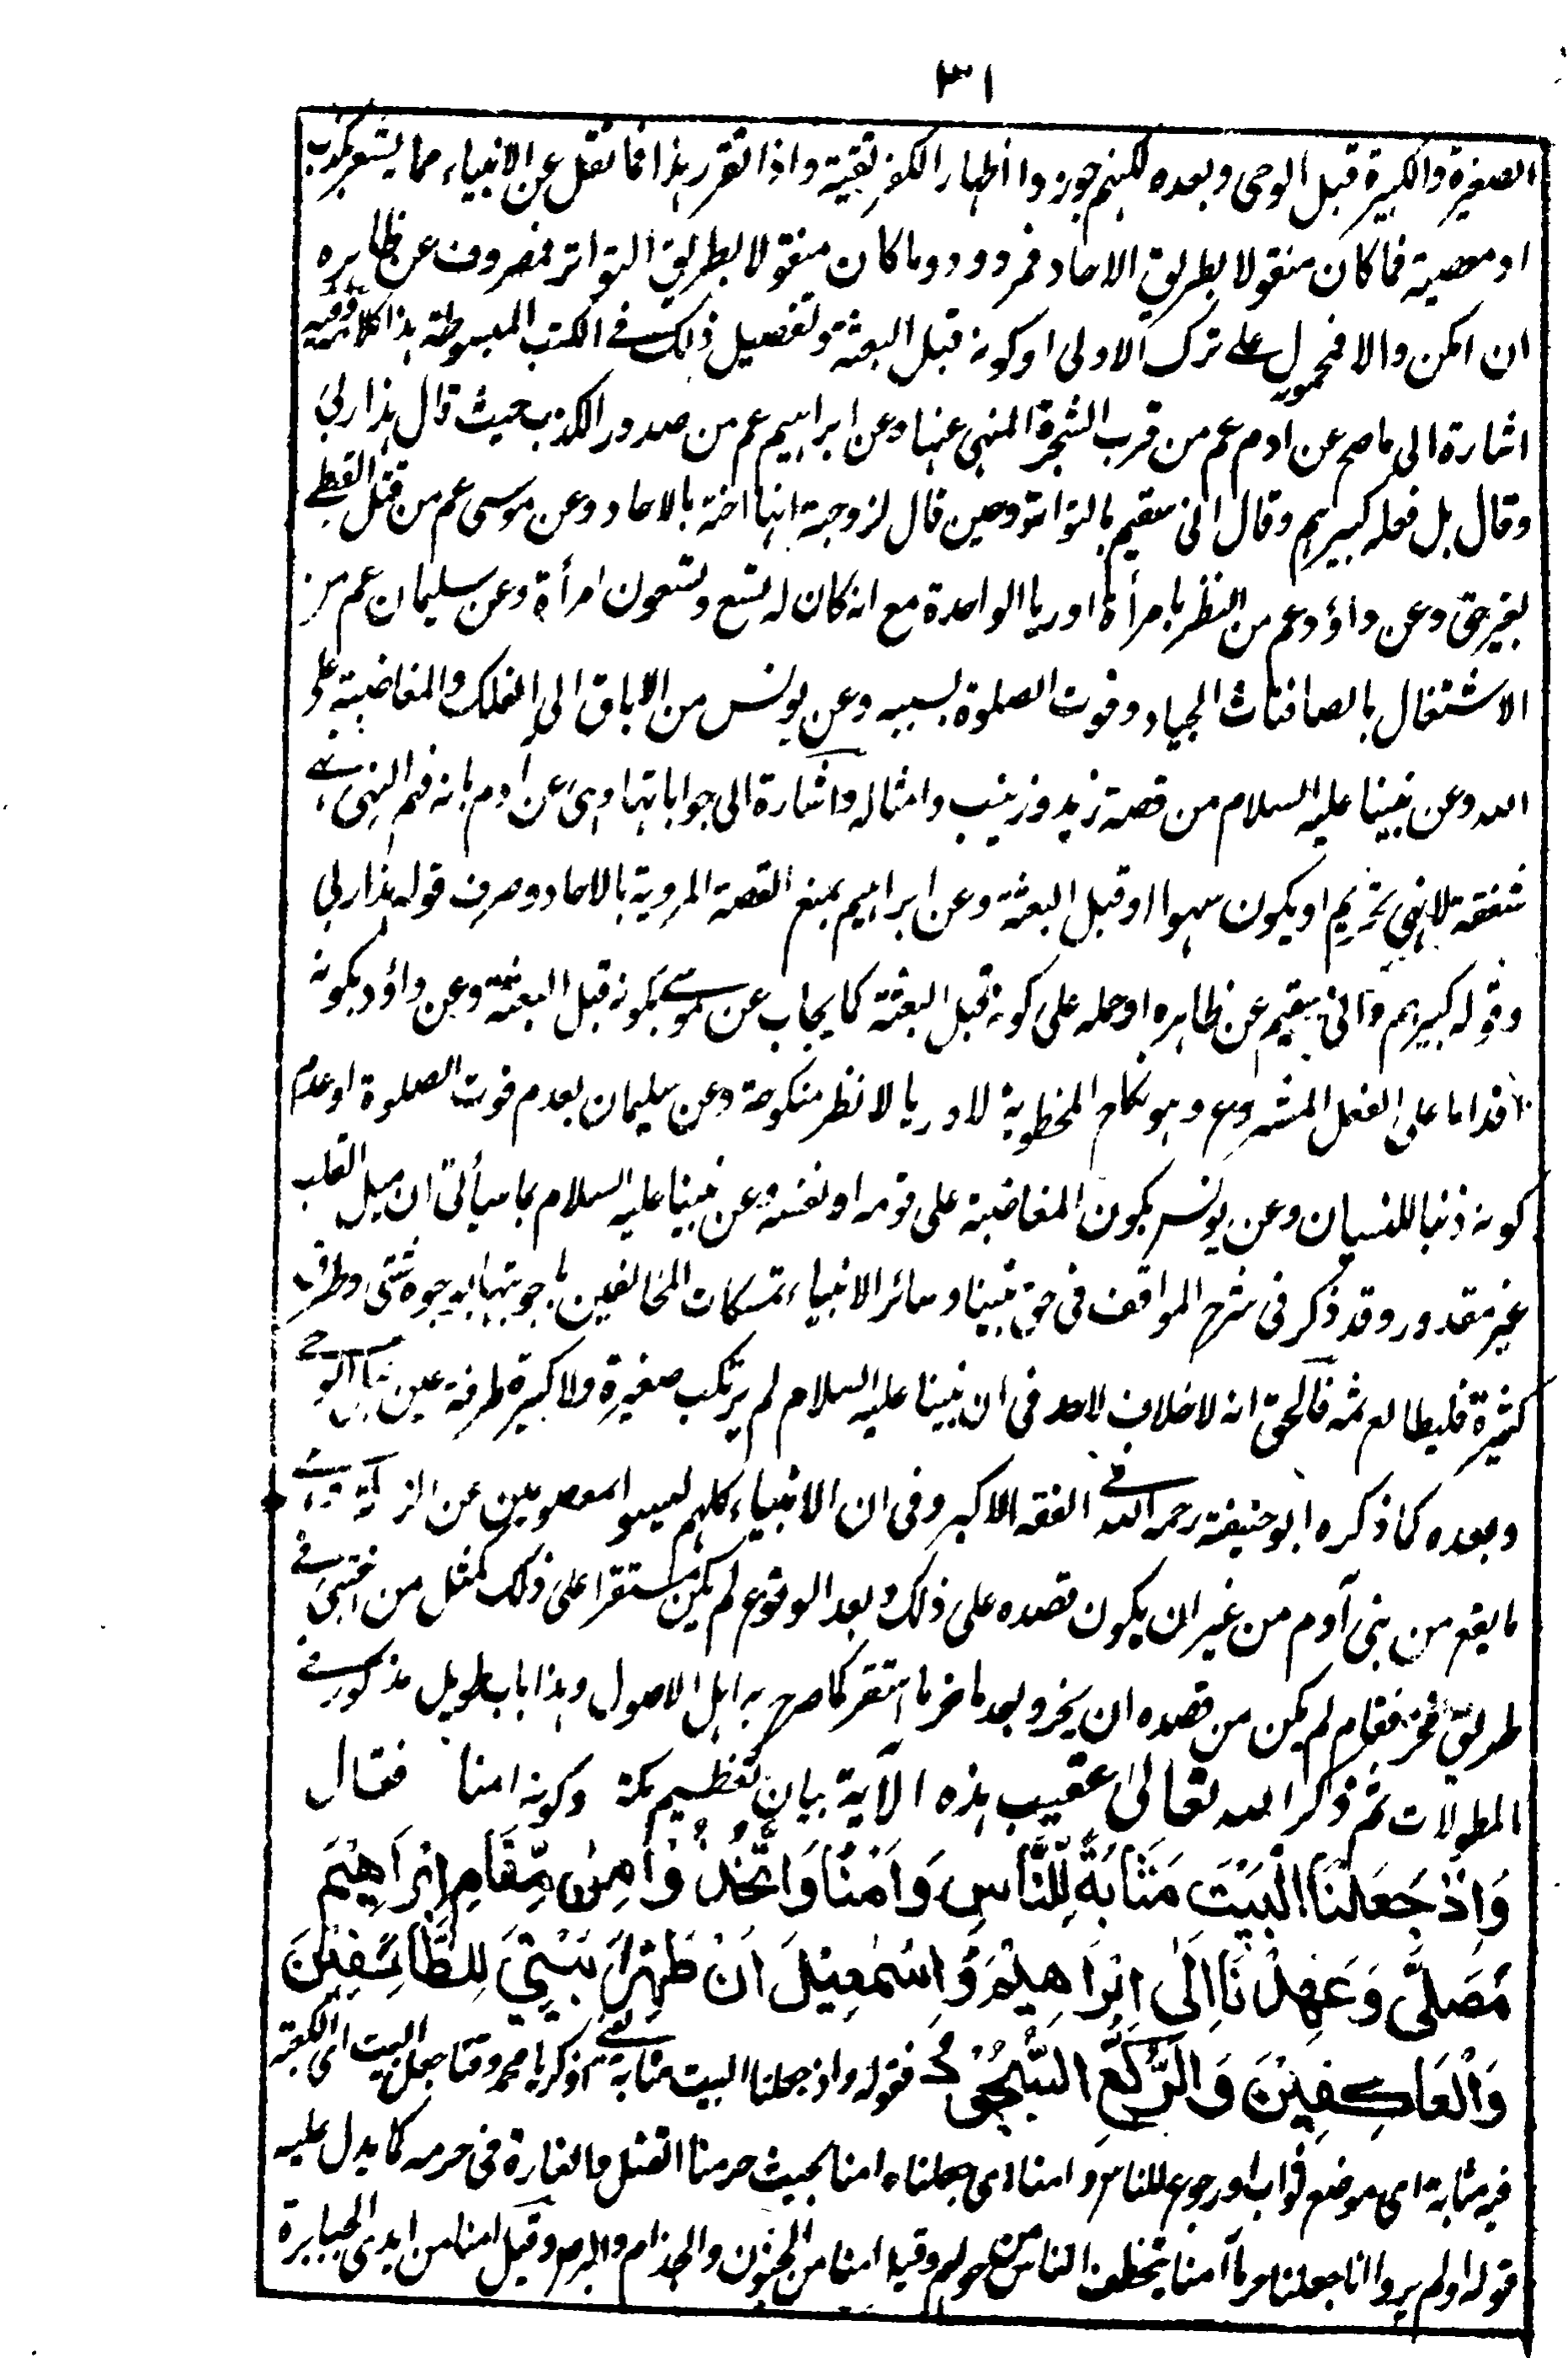 ٣١
الصغيرة والكبيرة قبل الوحى وبعده لكنهم جوزوا اظهار الكفر تقية واذا تقرر هذا فما نقل عن الانبياء مما يشعر بكذب
او معصية فما كان منقولا بطريق الاحاد فمردود وما كان منقولا بطريق التواتر فمصروف عن ظاهره
ان امكن والا فمحمول على ترك الاولى او كونه قبل البعثة وتفصيل ذلك فى الكتب المبسوطة هذا كلامه وفيه
اشارة الى ما صح عن ادم عم من قرب الشجرة المنهى عنها وعن ابراهيم عم من صدور الكذب حيث قال هذا ربى
وقال بل فعله كبيرهم وقال انى سقيم بالتواتر وحين قال لزوجته انها اخته بالاحاد وعن موسى عم من قتل القبطى
بغير حق وعن داؤد عم من النظر بامرأة اوريا الواحدة مع انه كان له تسع وتسعون امرأة وعن سليمان عم من
الاشتغال بالصافنات الجياد وفوت الصلوة بسببه وعن يونس من الاباق الى الفلك والمغاضبة على
الله وعن نبينا عليه السلام من قصة زيد وزينب وامثاله واشارة الى جواباتها وهى عن آدم بانه فهم النهى نهى
شفقة لا نهى تحريم او يكون سهوا او قبل البعثة وعن ابراهيم بمنع القصة المروية بالاحاد وصرف قوله هذا ربى
وقوله كبيرهم وانى سقيم عن ظاهره او حمله على كونه قبل البعثة كما يجاب عن موسى بكونه قبل البعثة وعن داؤد بكونه
اقداما على الفعل المشروع وهو نكاح المخطوبة لاوريا لا نظر منكوحة وعن سليمان بعدم فوت الصلوة او عدم
كونه ذنبا للنسيان وعن يونس بكون المغاضبة على قومه او نفسه وعن نبينا عليه السلام بما سيأتى ان ميل القلب
غير مقدور وقد ذكر فى شرح المواقف فى حق نبينا وسائر الانبياء تمسكات المخالفين باجوبتها بوجوه شتى وطرق
كثيرة فليطالع ثمه فالحق انه لا خلاف لاحد فى ان نبينا عليه السلام لم يرتكب صغيرة ولا كبيرة طرفة عين قبل الوحى
وبعده كما ذكره ابو حنيفة رحمه الله فى الفقه الاكبر وفى ان الانبياء كلهم ليسوا معصومين عن الزلة وهى
ما يقع من بنى آدم من غير ان يكون قصده على ذلك وبعد الوقوع لم يكن مستقرا على ذلك كمثل من مشى فى
طريق فخر فقام لم يكن من قصده ان يخر وبعد ما خر ما استقر كما صرح به اهل الاصول وهذا باب طويل مذكور فى
المطولات ثم ذكر الله تعالى عقيب هذه الآية بيان تعظيم مكة وكونه امنا فقال
وَاِذْ جَعَلْنَا الْبَيْتَ مَثَابَةً لِّلنَّاسِ وَاَمْنًا وَاتَّخِذُوْا مِنْ مَّقَامِ اِبْرَاهِيْمَ
مُصَلًّى وَعَهِدْنَا اِلٰى اِبْرَاهِيْمَ وَاِسْمٰعِيْلَ اَنْ طَهِّرَا بَيْتِيَ لِلطَّائِفِيْنَ
وَالْعَاكِفِيْنَ وَالرُّكَّعِ السُّجُوْدِ فقوله واذ جعلنا البيت مثابة يعنى اذكر يا محمد وقتا جعل البيت اى الكعبة
فيه مثابة اى موضع ثواب او رجوع للناس وامنا اى جعلناه امنا بحيث حرمنا القتل والغارة فى حرمه كما يدل عليه
قوله اولم يروا انا جعلنا حرما آمنا ويتخطف الناس من حولهم وقيل امنا من الجنون والجذام والبرص وقيل امنا من ايدى الجبابرة